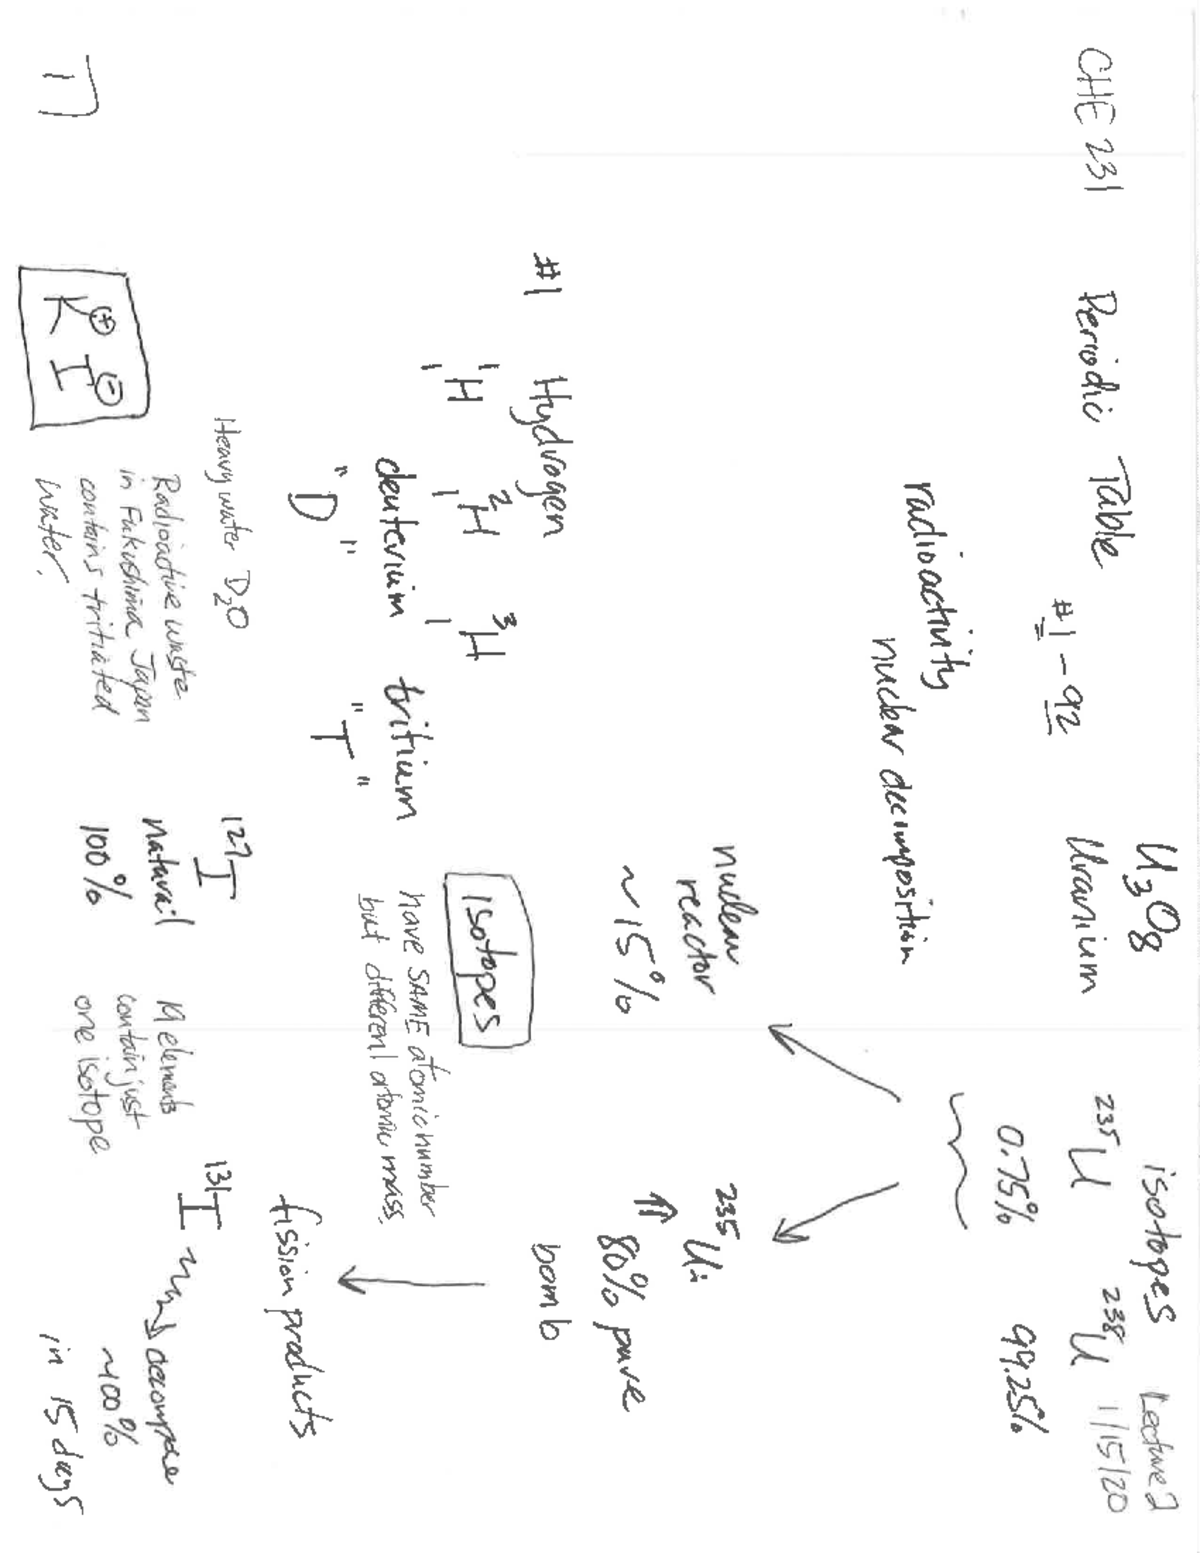 CHE 231 Periodic Table #1 - 92 U3O8 Uranium isotopes Lecture 2
235U 238U 1/15/20
0.75% 99.25%
radioactivity
nuclear decomposition
nuclear reactor
~15%
235U:
80% pure
bomb
#1 Hydrogen
1 1H 2 1H 3 1H
deuterium tritium
"D" "T"
isotopes
have SAME atomic number
but different atomic mass.
fission products
Heavy water D2O
Radioactive waste
in Fukushima Japan
contains tritiated
water.
K+ I-
127I
natural
100%
19 elements
contain just
one isotope
131I
decompose
~100%
in 15 days